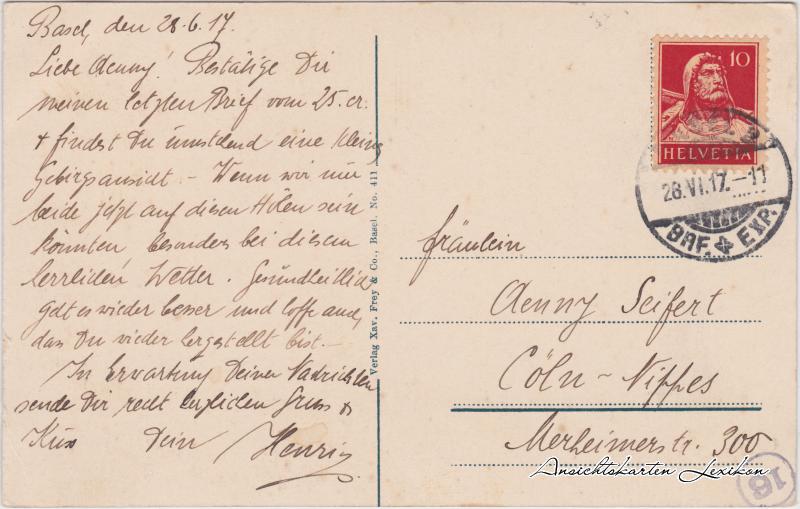 Basel, den 28.6.17.
Liebe Aenny! Bestätige Dir
meinen letzten Brief vom 25. cr.
& findest Du umstehend eine kleine
Gebirgsansicht – Wenn wir nur
beide jetzt auf diesen Höhen sein
könnten besonders bei diesem
herrlichen Wetter. Gesundheitlich
geht es wieder besser und hoffe auch,
dass Du wieder hergestellt bist. –
In Erwartung Deiner Nachrichten
sende Dir recht herzlichen Gruss &
Kuss Dein Henri
Verlag Xav. Frey & Co., Basel. No. 411
10
HELVETIA
28.VI.17.–11
BRF. EXP.
Fräulein
Aenny Seifert
Cöln-Nippes
Merheimerstr. 300
Ansichtskarten Lexikon
16